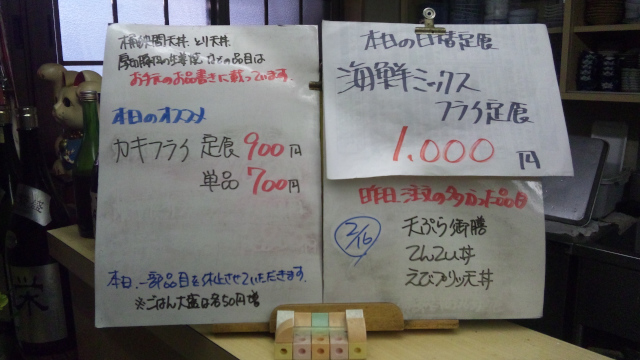 とり天丼
の品目は
お手元のお品書きに載っています。
本日のオススメ
カキフライ 定食 900円
単品 700円
本日、一部品目を休止させていただきます。
※ごはん大盛は各50円増
本日の日替定食
海鮮ミックス
フライ定食
1,000円
昨日、注文の多かった品目
2/16
天ぷら御膳
てんてん丼
えびプリッ天丼
栄